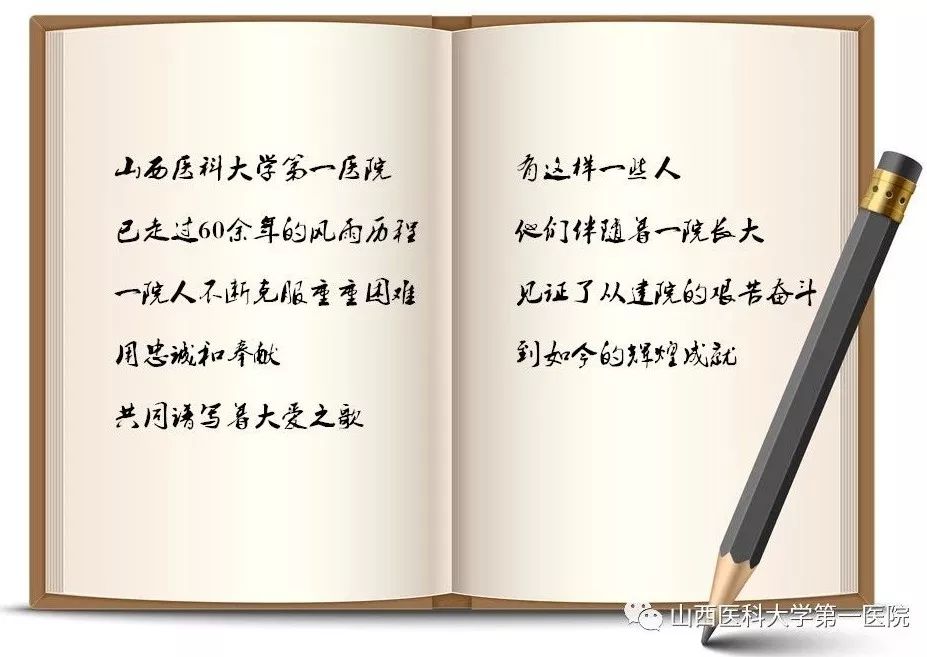 山西医科大学第一医院
已走过60余年的风雨历程
一院人不断克服重重困难
用忠诚和奉献
共同谱写着大爱之歌
有这样一些人
他们伴随着一院长大
见证了从建院的艰苦奋斗
到如今的辉煌成就
山西医科大学第一医院